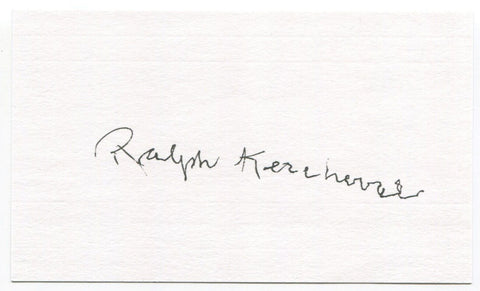 Ralph Kercheval